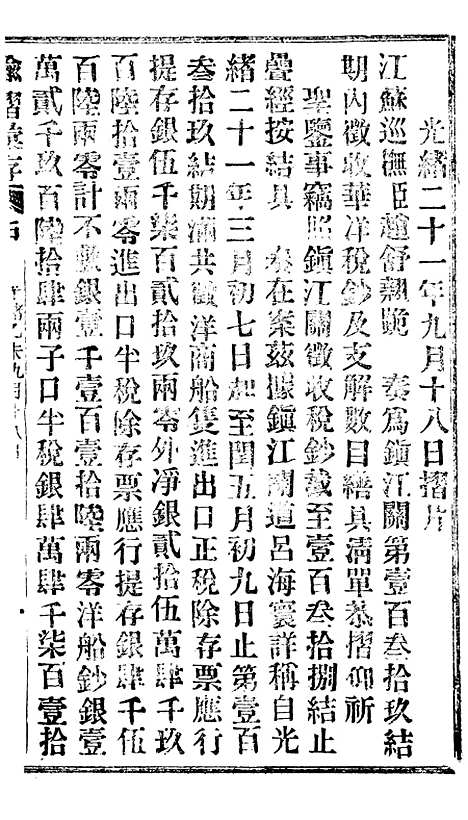 光緒二十一年九月十八日摺片
江蘇巡撫臣趙舒翹跪　奏爲鎮江關第壹百叁拾玖結
期內徵收華洋稅鈔及支解數目繕具清單恭摺仰祈
聖鑒事竊照鎮江關徵收稅鈔截至壹百叁拾捌結止
疊經按結具　奏在案茲據鎮江關道呂海寰詳稱自光
緒二十一年三月初七日起至閏五月初九日止第壹百
叁拾玖結期滿共徵洋商船隻進出口正稅除存票應行
提存銀伍千柒百貳拾玖兩零外淨銀貳拾伍萬肆千玖
百陸拾壹兩零進出口半稅除存票應行提存銀肆千伍
百陸兩零計不敷銀壹千壹百壹拾陸兩零洋船鈔銀壹
萬貳千玖百陸拾肆兩子口半稅銀肆萬肆千柒百壹拾
諭摺彙存